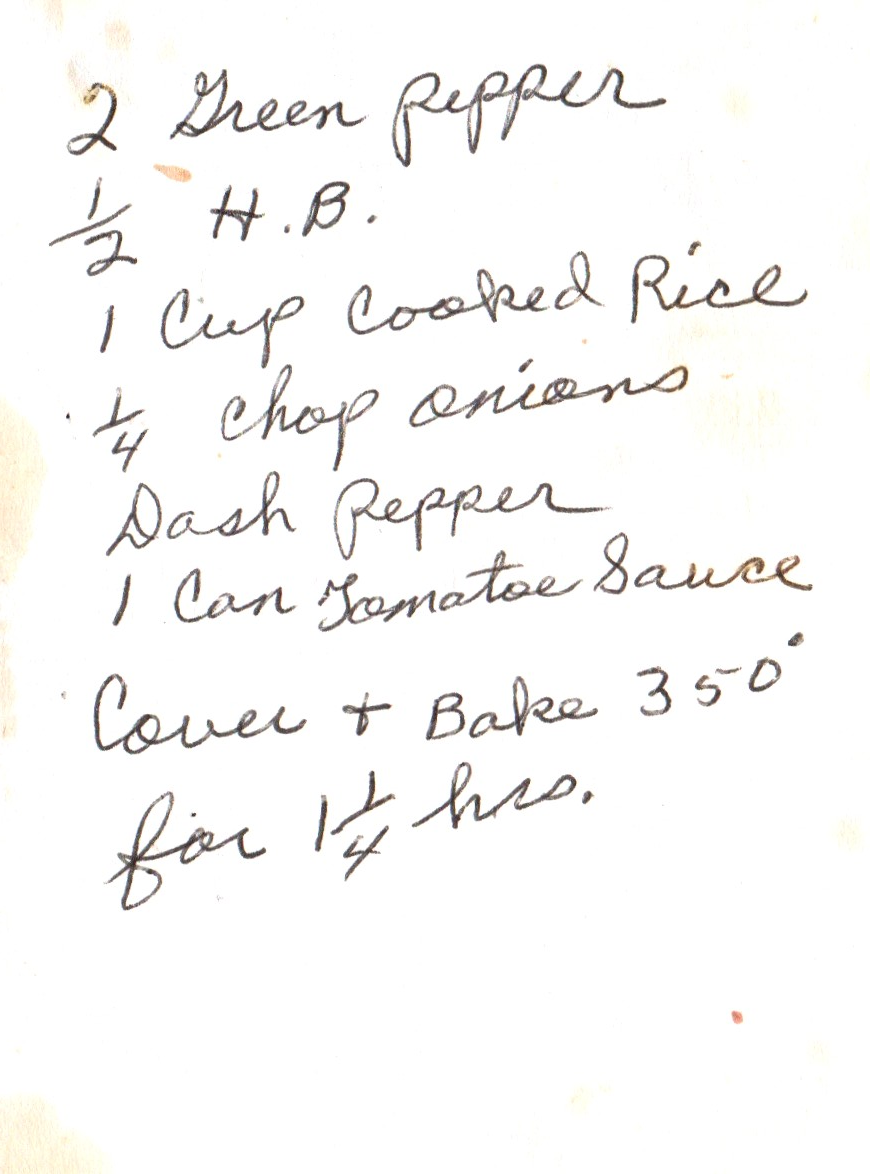 2 Green pepper
1/2 H.B.
1 Cup Cooked Rice
1/4 chop onions
Dash pepper
1 Can Tomatoe Sauce
Cover + Bake 350°
for 1 1/4 hrs.